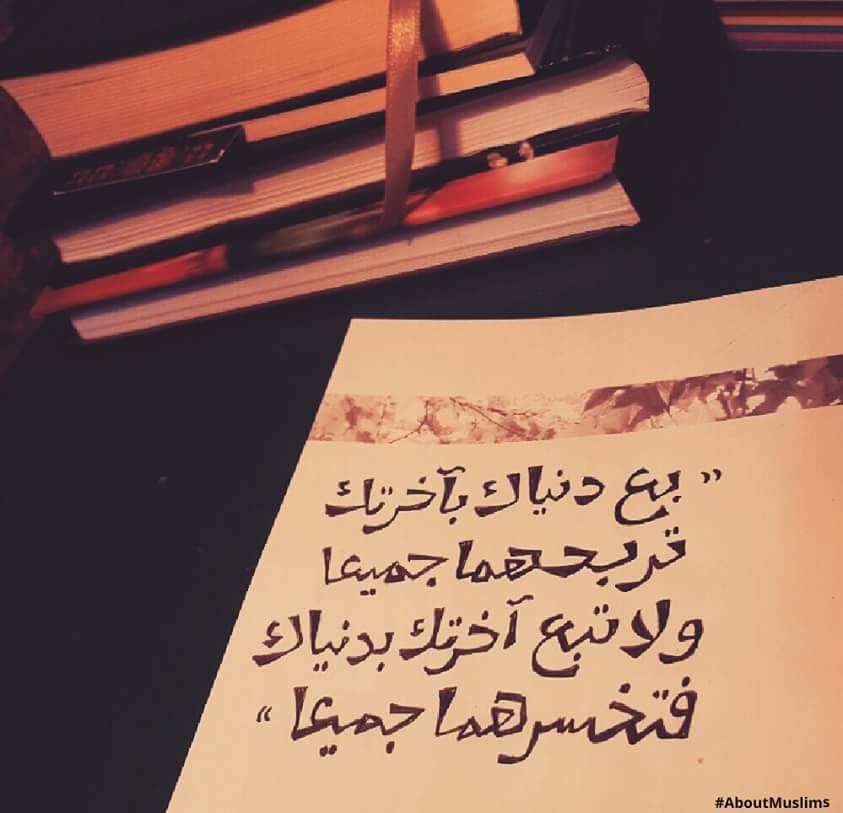 ” بع دنياك بآخرتك
تربحهما جميعا
ولا تبع آخرتك بدنياك
فتخسرهما جميعا “
#AboutMuslims